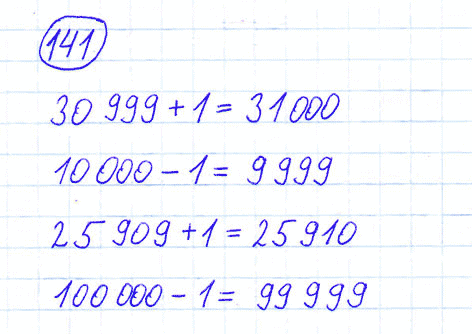 141
30 999 + 1 = 31 000
10 000 - 1 = 9 999
25 909 + 1 = 25 910
100 000 - 1 = 99 999